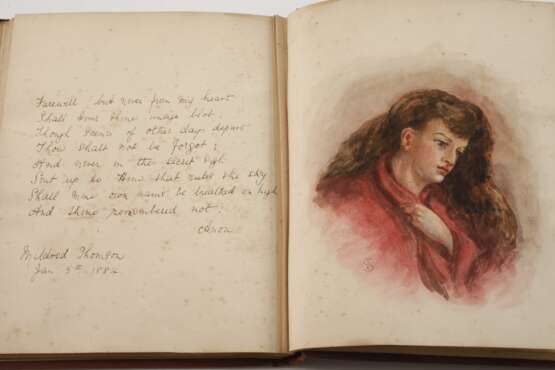 Farewell, but never from my heart
Shall time thine image blot.
Though scenes of other days depart
Thou shalt not be forgot:
And never in the secret sigh
Sent up to Him that rules the sky
Shall mine own name be breathed on high
And thine remembered not.
Anon
Mildred Thomson
Jan 5th 1882